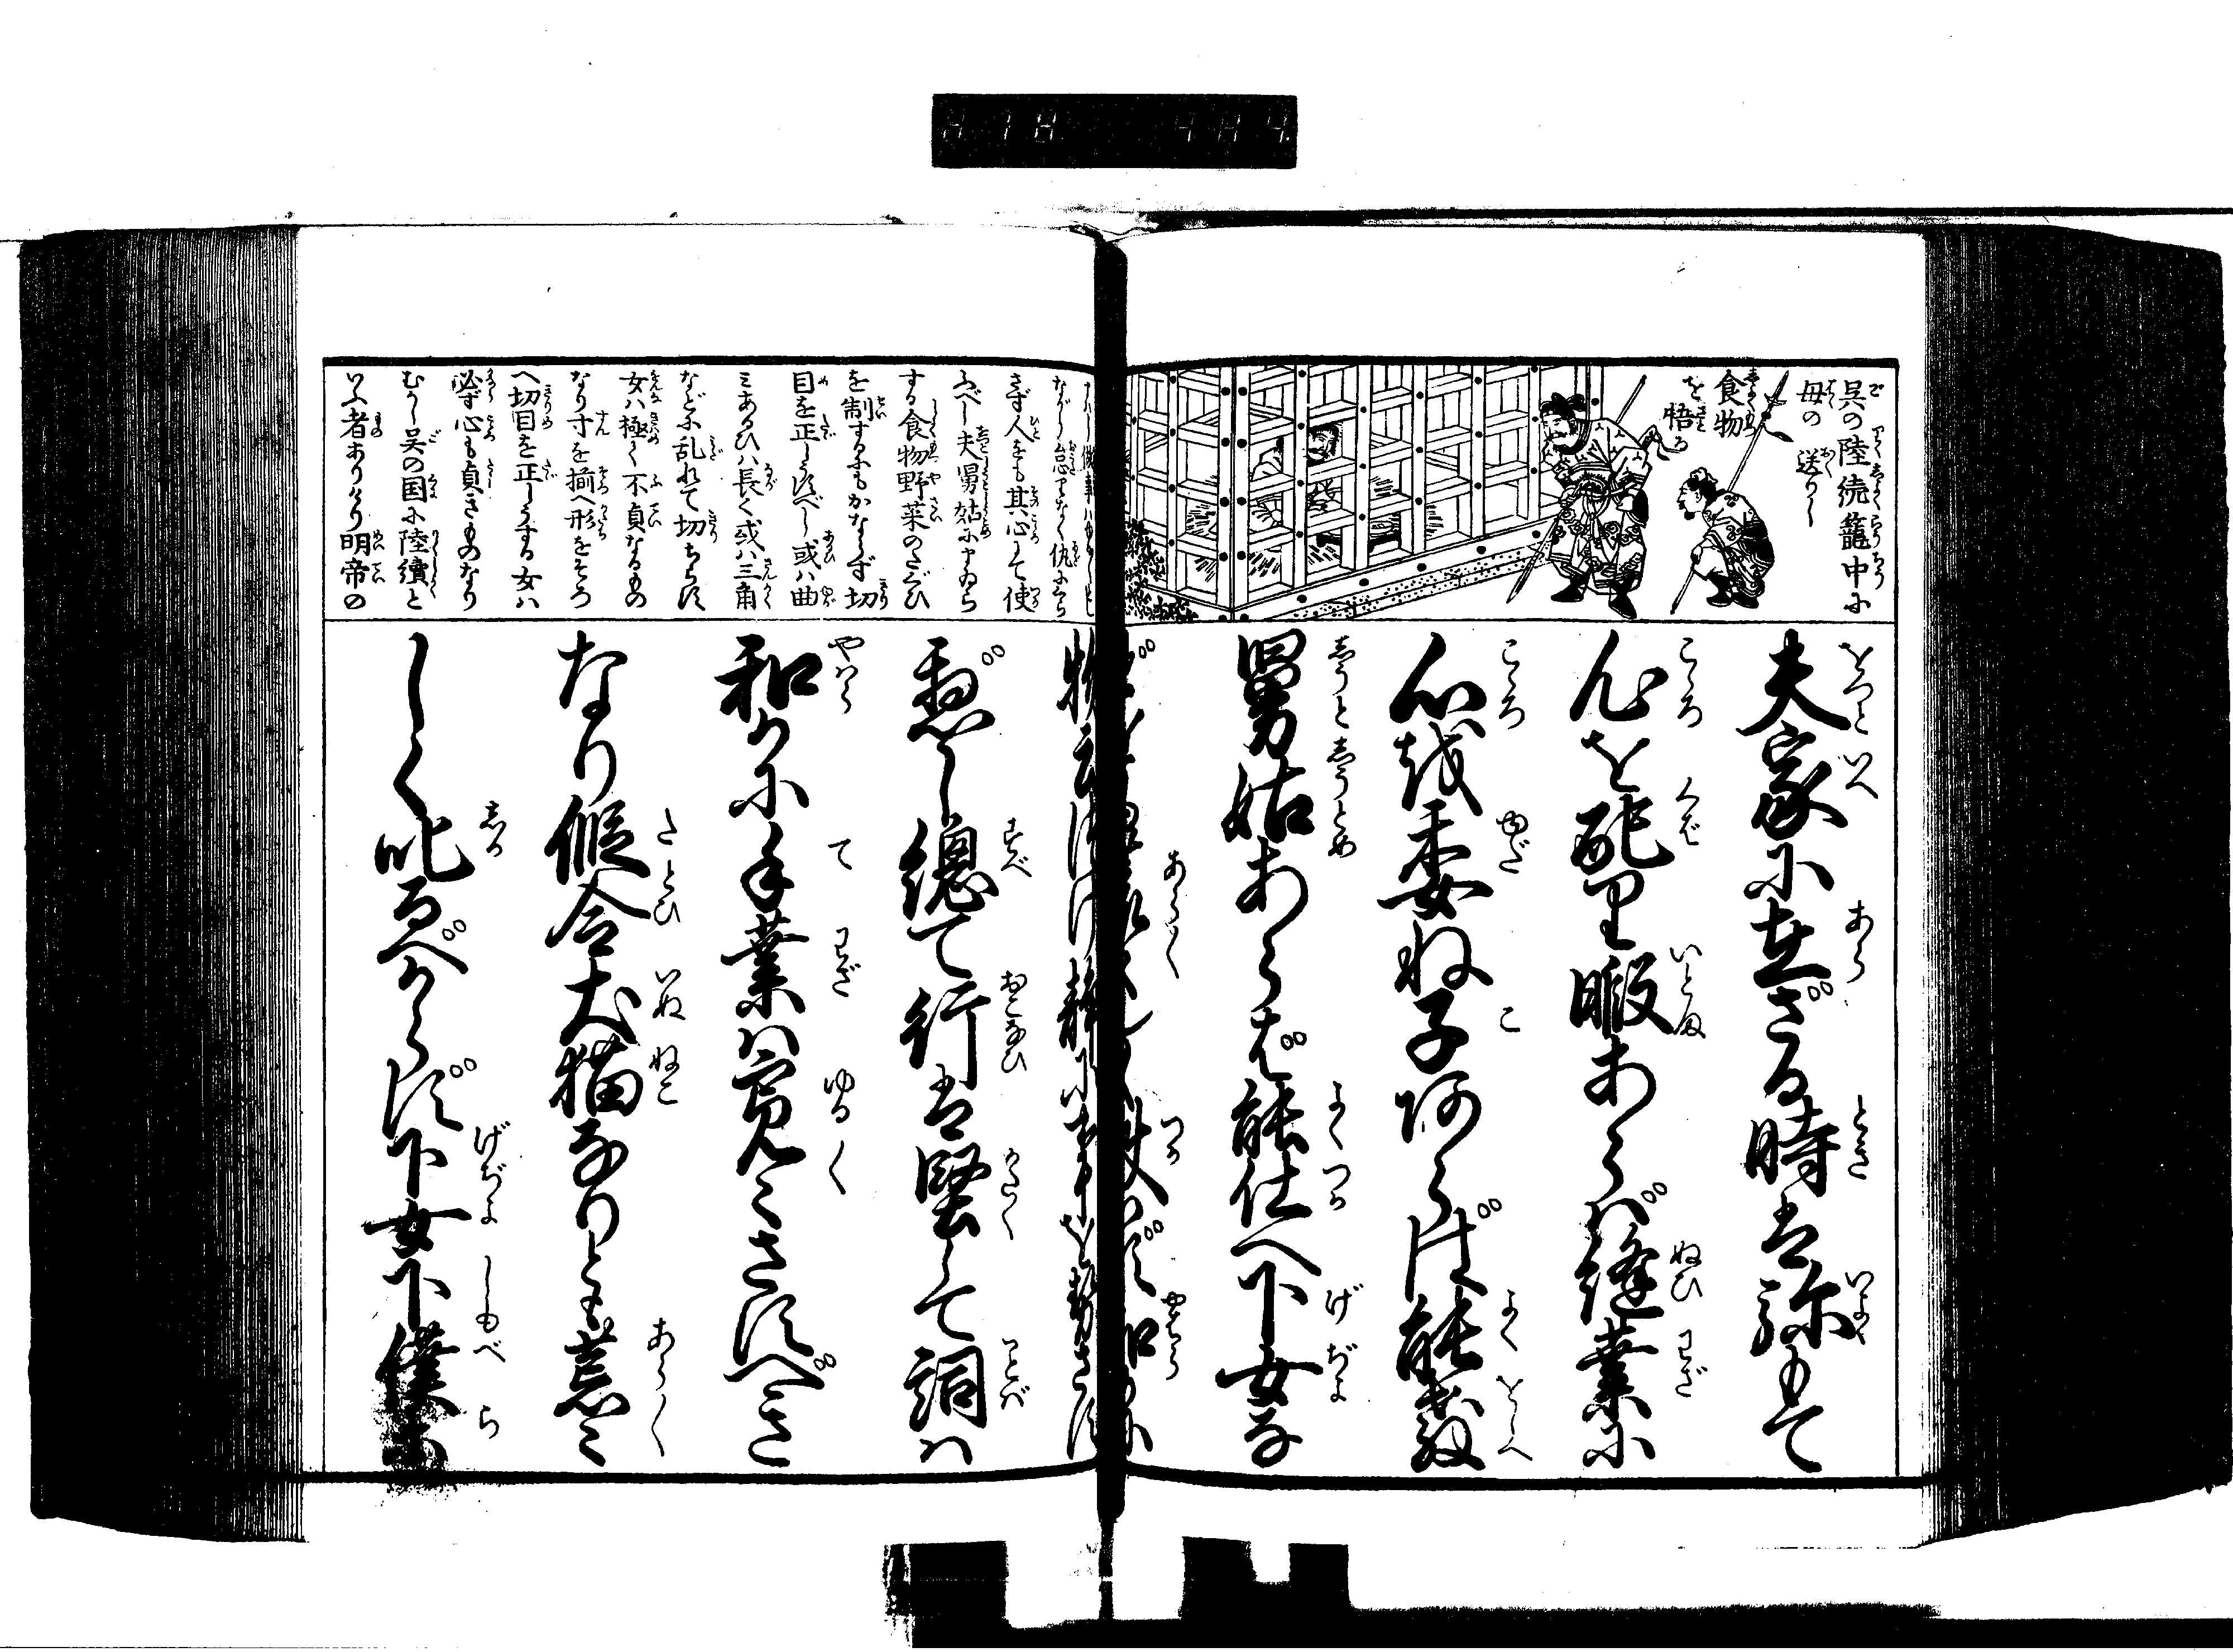 呉の陸続籠中に
母の送りし
食物
を悟る
夫家に在ざる時は弥もて
心を砕里暇あらば縫業に
心越委ね子阿らば能教
舅姑あらば能仕へ下女な
惣じて行は堅して詞ハ
和かに手業ハ寛くさすべき
なり假令犬猫なりとも荒く
しく叱るべからず下女下僕
さず人をも其心して使
ふべし夫舅姑にまゐら
する食物野菜のたぐひ
を制するにもかならず切
目を正しうすべし或ハ曲
ミあるひハ長く或ハ三角
などに乱れて切ちらす
女ハ極て不貞なるもの
なり寸を揃へ形をそろ
へ切目を正しうする女ハ
必ず心も貞きものなり
むかし呉の国に陸續と
いふ者ありけり明帝の